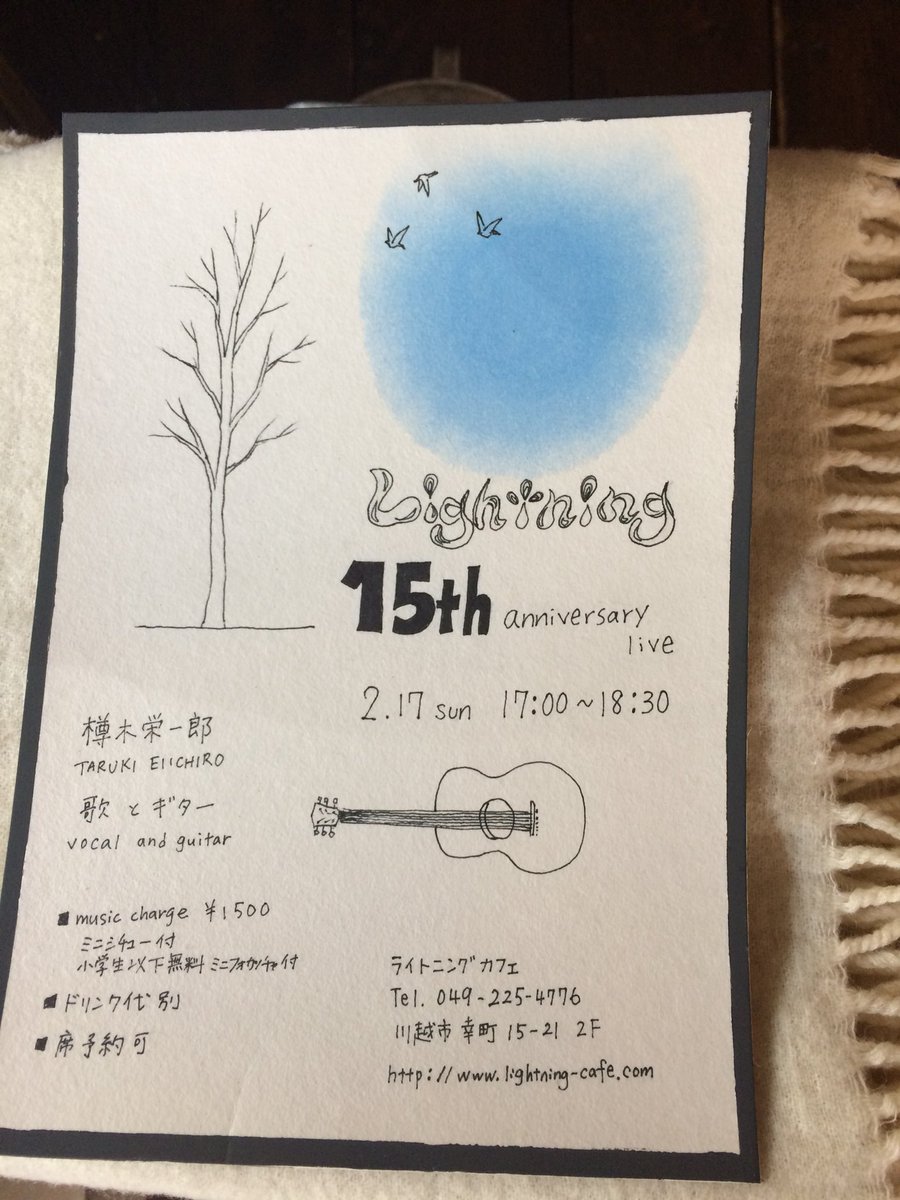 Lightning
15th anniversary
live
2.17 sun 17:00~18:30
樽木栄一郎
TARUKI EIICHIRO
歌とギター
vocal and guitar
■ music charge ¥1500
ミニシチュー付
小学生以下無料 ミニフォカッチャ付
■ ドリンク代別
■ 席予約可
ライトニングカフェ
Tel. 049-225-4776
川越市幸町15-21 2F
http://www.lightning-cafe.com